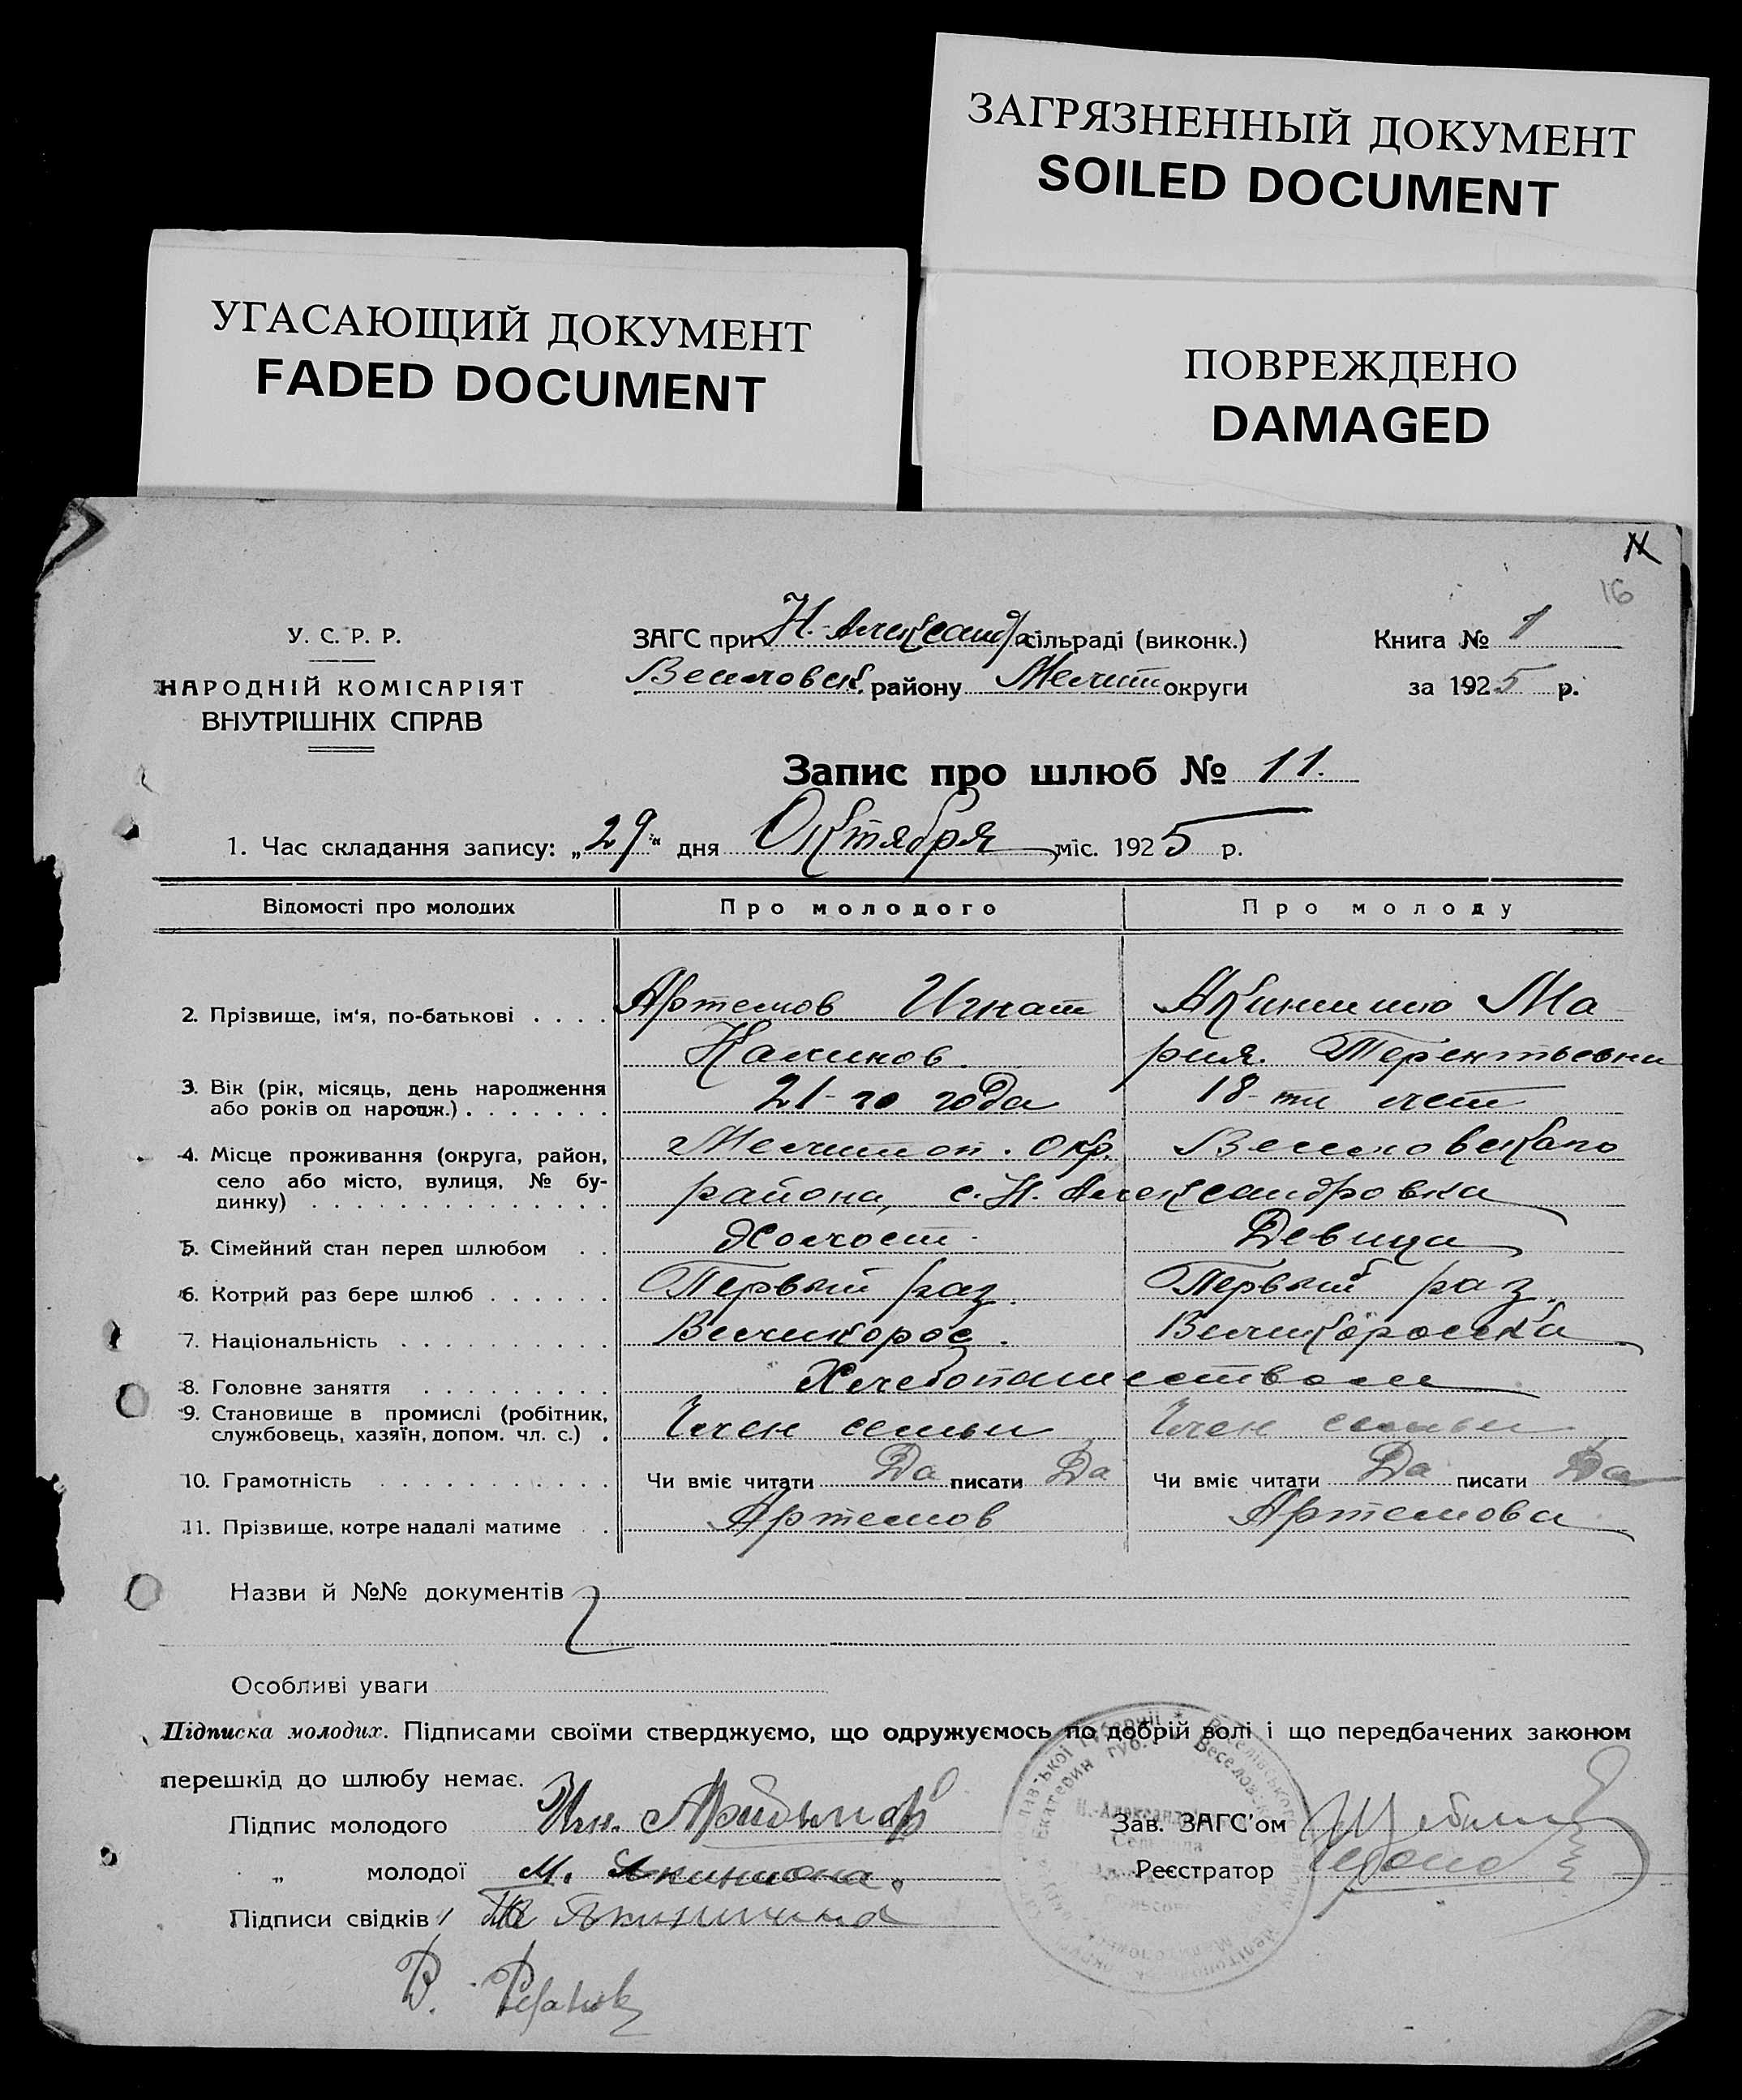 ЗАГРЯЗНЕННЫЙ ДОКУМЕНТ
SOILED DOCUMENT
УГАСАЮЩИЙ ДОКУМЕНТ
FADED DOCUMENT
ПОВРЕЖДЕНО
DAMAGED
16
У. С. Р. Р.
НАРОДНІЙ КОМІСАРІЯТ
ВНУТРІШНІХ СПРАВ
ЗАГС при Н.-Александр сільраді (виконк.)
Веселовск. району Мелит округи
Книга № 1
за 1925 р.
Запис про шлюб № 11.
1. Час складання запису: „29“ дня Октября міс. 1925 р.
Відомості про молодих Про молодого Про молоду
2. Прізвище, ім'я, по-батькові . . . . Артемов Игнат Акинишю Ма
Калинов. рия Терентьевна
3. Вік (рік, місяць, день народження 21-го года 18-ти лет
або років од народж.) . . . . . . .
4. Місце проживання (округа, район, Мелитоп. окр. Веселовского
село або місто, вулиця, № бу- района, с. Н. Александровка
динку) . . . . . . . . . . . . .
5. Сімейний стан перед шлюбом . . Холост Девица
6. Котрий раз бере шлюб . . . . . . Первый раз. Первый раз.
7. Національність . . . . . . . . . . Великорос. Великоросска
8. Головне заняття . . . . . . . . . Хлебопашеством
9. Становище в промислі (робітник, Член семьи Член семьи
службовець, хазяїн, допом. чл. с.) .
10. Грамотність . . . . . . . . . . . Чи вміє читати Да писати Да Чи вміє читати Да писати Да
11. Прізвище, котре надалі матиме . . Артемов Артемова
Назви й №№ документів
Особливі уваги
Підписка молодих. Підписами своїми стверджуємо, що одружуємось по добрій волі і що передбачених законом
перешкід до шлюбу немає.
Підпис молодого Игн.
Зав. ЗАГС'ом
„ молодої М.
Реєстратор
Підписи свідків
В.